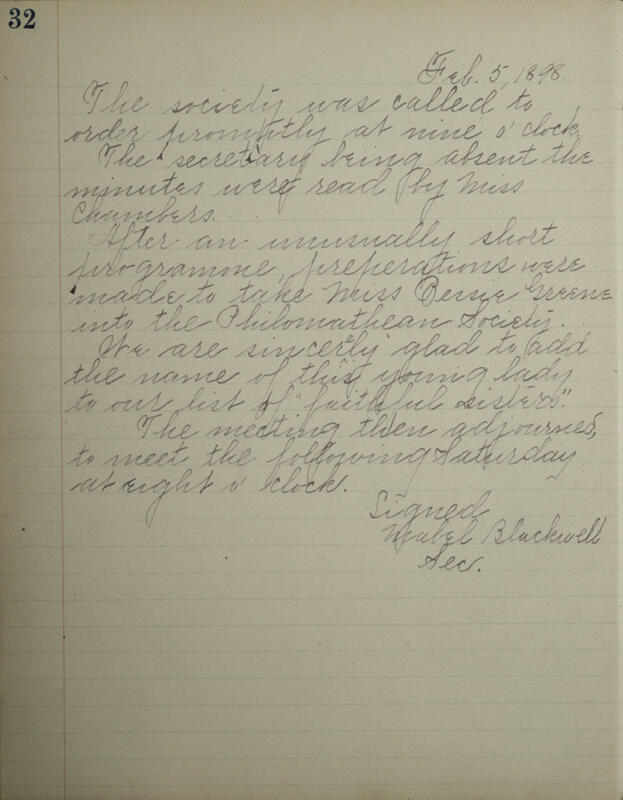 32
Feb. 5, 1898.
The society was called to
order promptly at nine o'clock.
The secretary being absent the
minutes were read by Miss
Chambers.
After an unusually short
programme, preperations were
made to take Miss Bessie Greene
into the Philomathean Society.
We are sincerely glad to add
the name of this young lady
to our list of "faithful sisters".
The meeting then adjourned,
to meet the following Saturday
at eight o'clock.
Signed
Mabel Blackwell
Sec.